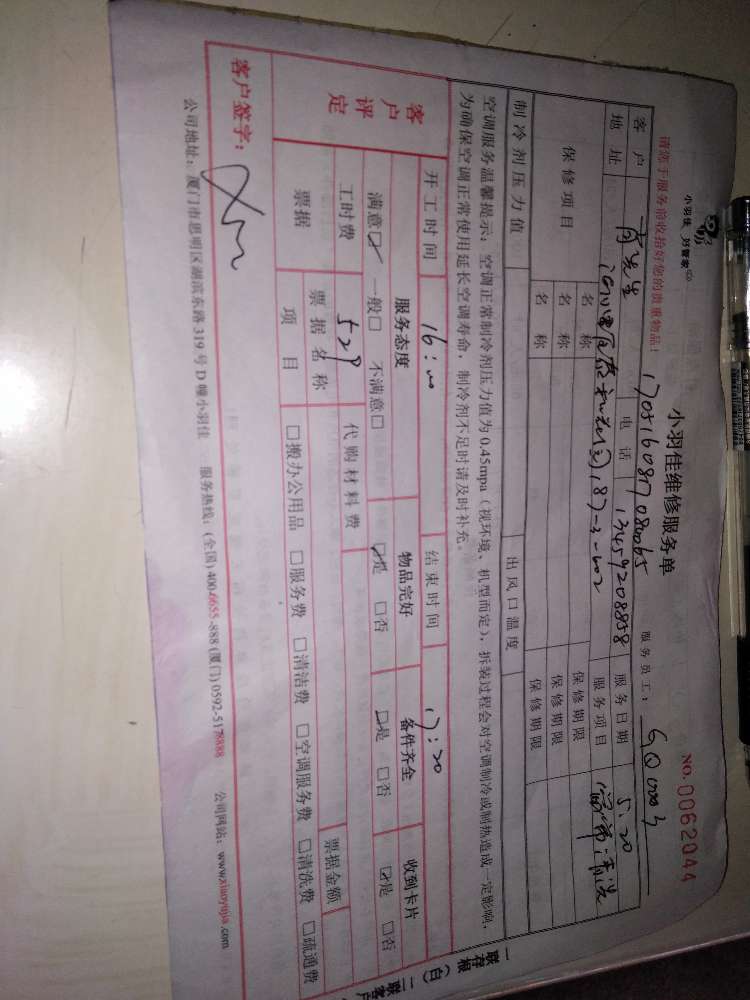 小羽佳 好管家
小羽佳维修服务单
NO.0062044
请您于服务前收拾好您的贵重物品！
服务员工：
客户 电话 13459208858 服务日期 5.20
地址 服务项目
保修项目 名称 保修期限
名称 保修期限
名称 保修期限
制冷剂压力值 出风口温度
空调服务温馨提示：空调正常制冷剂压力值为0.45mpa（视环境、机型而定），拆装过程会对空调制冷或制热造成一定影响，
为确保空调正常使用延长空调寿命，制冷剂不足时请及时补充。
开工时间 16:00 结束时间 17:20
客户评定 服务态度 物品完好 备件齐全 收到卡片
满意□ 一般□ 不满意□ □是 □否 □是 □否 □是 □否
工时费 529 代购材料费
票据 票据名称 票据金额
项目 □搬办公用品 □服务费 □清洁费 □空调服务费 □清洗费 □疏通费
客户签字：
公司地址：厦门市思明区湖滨东路319号D幢小羽佳 服务热线：(全国) 400-6655-888 (厦门) 0592-5178888 公司网站：www.xiaoyujia.com
一联存根（白）二联客户